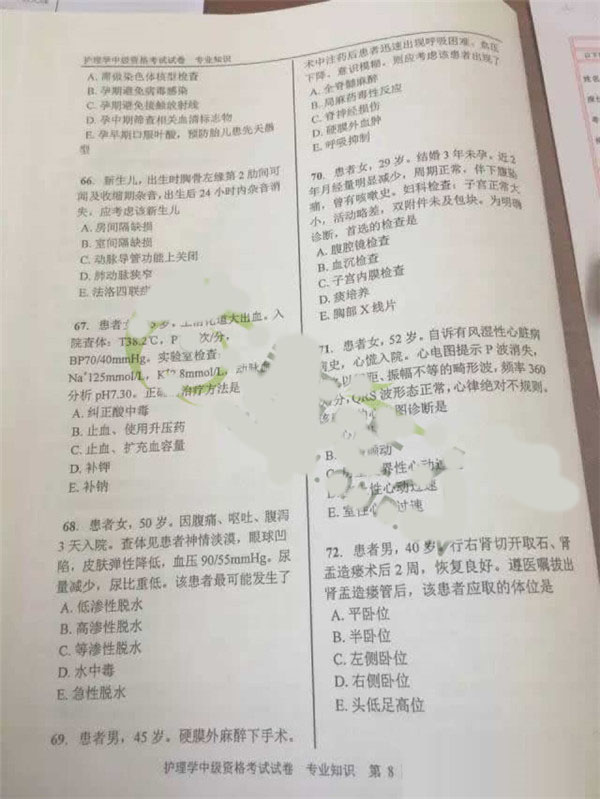 护理学中级资格考试试卷 专业知识
A. 需做染色体核型检查
B. 孕期避免病毒感染
C. 孕期避免接触放射线
D. 孕中期筛查相关血清标志物
E. 孕早期口服叶酸，预防胎儿患先天畸
型
66. 新生儿，出生时胸骨左缘第2肋间可
闻及收缩期杂音，出生后24小时内杂音消
失，应考虑该新生儿
A. 房间隔缺损
B. 室间隔缺损
C. 动脉导管功能上关闭
D. 肺动脉狭窄
E. 法洛四联症
67. 患者 岁。上消化道大出血。入
院查体：T38.2℃，P 次/分，
BP70/40mmHg。实验室检查：
Na⁺125mmol/L，K 8mmol/L，动脉
分析pH7.30。正 治疗方法是
A. 纠正酸中毒
B. 止血、使用升压药
C. 止血、扩充血容量
D. 补钾
E. 补钠
68. 患者女，50岁。因腹痛、呕吐、腹泻
3天入院。查体见患者神情淡漠，眼球凹
陷，皮肤弹性降低，血压90/55mmHg。尿
量减少，尿比重低。该患者最可能发生了
A. 低渗性脱水
B. 高渗性脱水
C. 等渗性脱水
D. 水中毒
E. 急性脱水
69. 患者男，45岁。硬膜外麻醉下手术。
术中注药后患者迅速出现呼吸困难、血压
下降、意识模糊，则应考虑该患者出现了
A. 全脊髓麻醉
B. 局麻药毒性反应
C. 脊神经损伤
D. 硬膜外血肿
E. 呼吸抑制
70. 患者女，29岁。结婚3年未孕。近2
年月经量明显减少，周期正常，伴下腹坠
痛，曾有咳嗽史。妇科检查：子宫正常大
小，活动略差，双附件未及包块。为明确
诊断，首选的检查是
A. 腹腔镜检查
B. 血沉检查
C. 子宫内膜检查
D. 痰培养
E. 胸部X线片
71. 患者女，52岁。自诉有风湿性心脏病
病史，心慌入院。心电图提示P波消失，
以 距、振幅不等的畸形波，频率360
分，QRS波形态正常，心律绝对不规则。
该 图诊断是
B. 动
C. 性心动过速
D. 性心动过速
E. 室性 过速
72. 患者男，40岁。行右肾切开取石、肾
盂造瘘术后2周，恢复良好。遵医嘱拔出
肾盂造瘘管后，该患者应取的体位是
A. 平卧位
B. 半卧位
C. 左侧卧位
D. 右侧卧位
E. 头低足高位
护理学中级资格考试试卷 专业知识 第 8